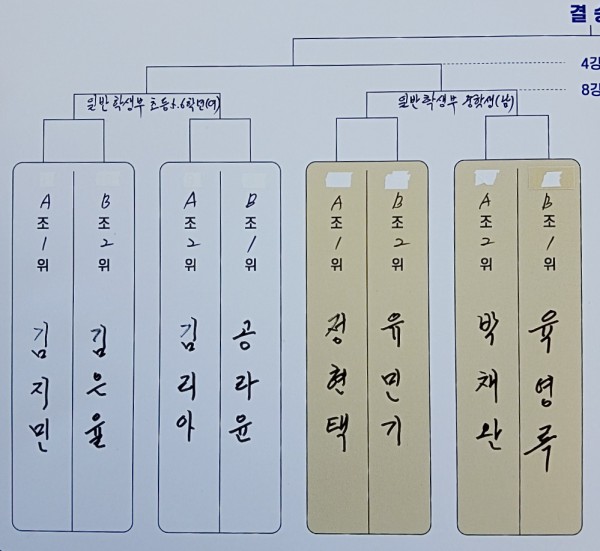 결승
4강
8강
일반 학생부 초등 5.6학년(여)
일반 학생부 중학생(남)
A조1위 김지민
B조2위 김은율
A조2위 김리아
B조1위 공라윤
A조1위 정현택
B조2위 유민기
A조2위 박채완
B조1위 육영루